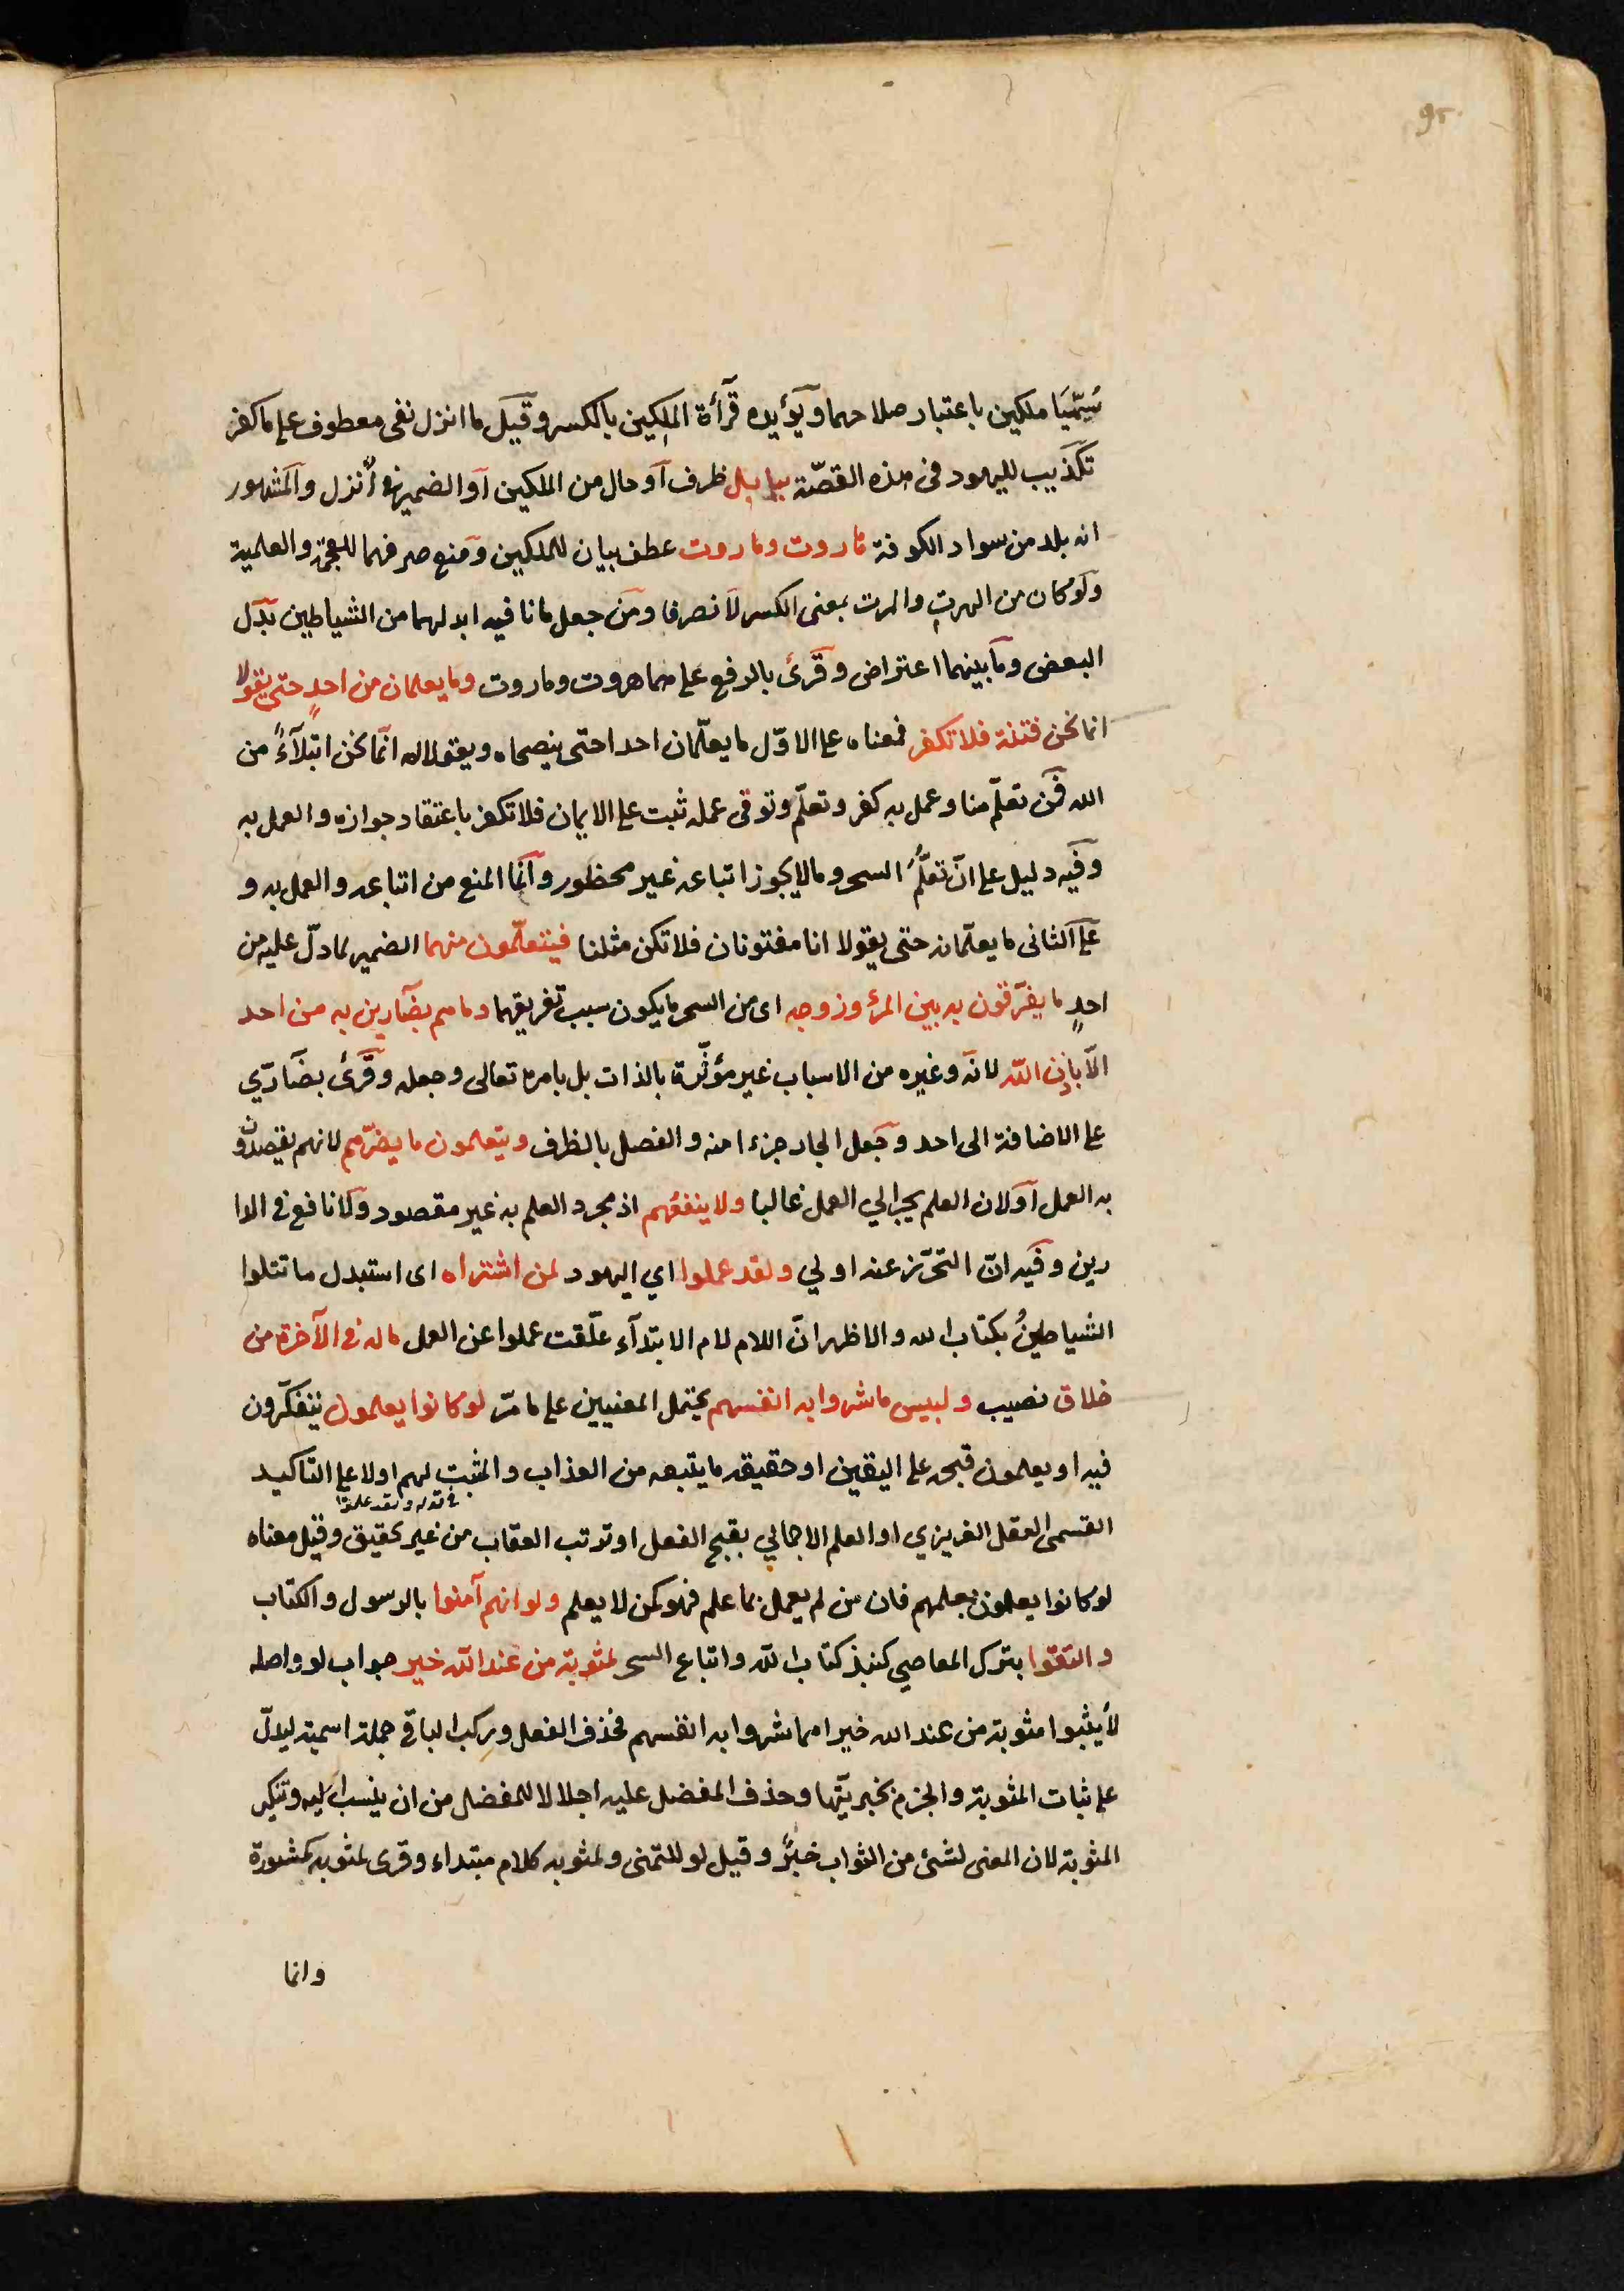 95
سُمّيَا ملكين باعتبار صلاحهما ويؤيده قرأة الملِكين بالكسر وقيل ما انزل نفى معطوف على ما كفر
تكذيب لليهود فى هذه القصّة ببابل ظرف او حال من الملكين او الضمير فى أنزل والمشهور
انه بلد من سواد الكوفة هاروت وماروت عطف بيان للملكين ومنع صرفهما للعجمة والعلمية
ولو كان من الهرت والمرت بمعنى الكسر لانصرفا ومن جعل ما نافيه ابدلهما من الشياطين بدل
البعض وما بينهما اعتراض وقرئ بالرفع على هما هروت وماروت وما يعلمان من احدٍ حتى يقولا
انما نحن فتنة فلا تكفر فمعناه على الاوّل ما يعلّمان احدا حتّى ينصحاه ويقولا له انّما نحن ابتلاءً من
الله فمن تعلّم منا وعمل به كفر وتعلّم وتوقى عمله ثبت على الايمان فلا تكفر باعتقاد جوازه والعمل به
وفيه دليل على انّ تعلُّم السحر وما لا يجوز اتباعه غير محظور وانما المنع من اتباعه والعمل به و
على الثانى ما يعلّمانه حتى يقولا انا مفتونان فلا تكن مثلنا فيتعلّمون منهما الضمير لما دلّ عليه من
احدٍ ما يفرّقون به بين المرء وزوجه اى من السحر ما يكون سبب تفريقهما وما هم بضآرين به من احد
الّا باذن الله لانّه وغيره من الاسباب غير مؤثّرة بالذات بل بامره تعالى وجعله وقرئ بضآرّي
على الاضافة الى احد وجعل الجار جزءا منه والفصل بالظرف ويتعلمون ما يضرّهم لانهم يقصدون
به العمل او لان العلم يجرّ الي العمل غالبا ولا ينفعُهم اذ مجرد العلم به غير مقصود ولا نافع فى الدا
رين وفيه انّ التحّرز عنه اولي ولقد عملوا اي اليهود لمن اشتراه اى استبدل ما تتلوا
الشياطينُ بكتاب الله والاظهر انّ اللام لام الابتدآء علّقت عملوا عن العمل ما له فى الآخرة من
خلاق نصيب ولبيس ما شروا به انفسهم يحتمل المعنيين على ما مرّ لو كانوا يعلمون يتفكّرون
فيه او يعلمون قبحه على اليقين او حقيقه ما يتبعه من العذاب والمثبت لهم اولا على التاكيد
فى قوله ولقد علموا
القسمى العقل الغريزي او العلم الاجمالي بقبح الفعل او ترتب العقاب من غير تحقيق وقيل معناه
لو كانوا يعملون بعلمهم فان من لم يعمل بما علم فهو كمن لا يعلم ولو انهم آمنوا بالرسول والكتاب
واتقوا بترك المعاصي كنبذ كتاب الله واتباع السحر لمثوبة من عند الله خير جواب لو واصله
لأثيبوا مثوبة من عند الله خيرا مما شروا به انفسهم فحذف الفعل وركب الباقي جملة اسمية ليدلّ
على ثبات المثوبة والجزم بخيريّتها وحذف المفضل عليه اجلالا للمفضل من ان ينسب اليه وتنكير
المثوبة لان المعنى لشئ من الثواب خيرٌ وقيل لو للتمنى ولمثوبه كلام مبتداء وقرى لمثوبه كمشورة
وانما